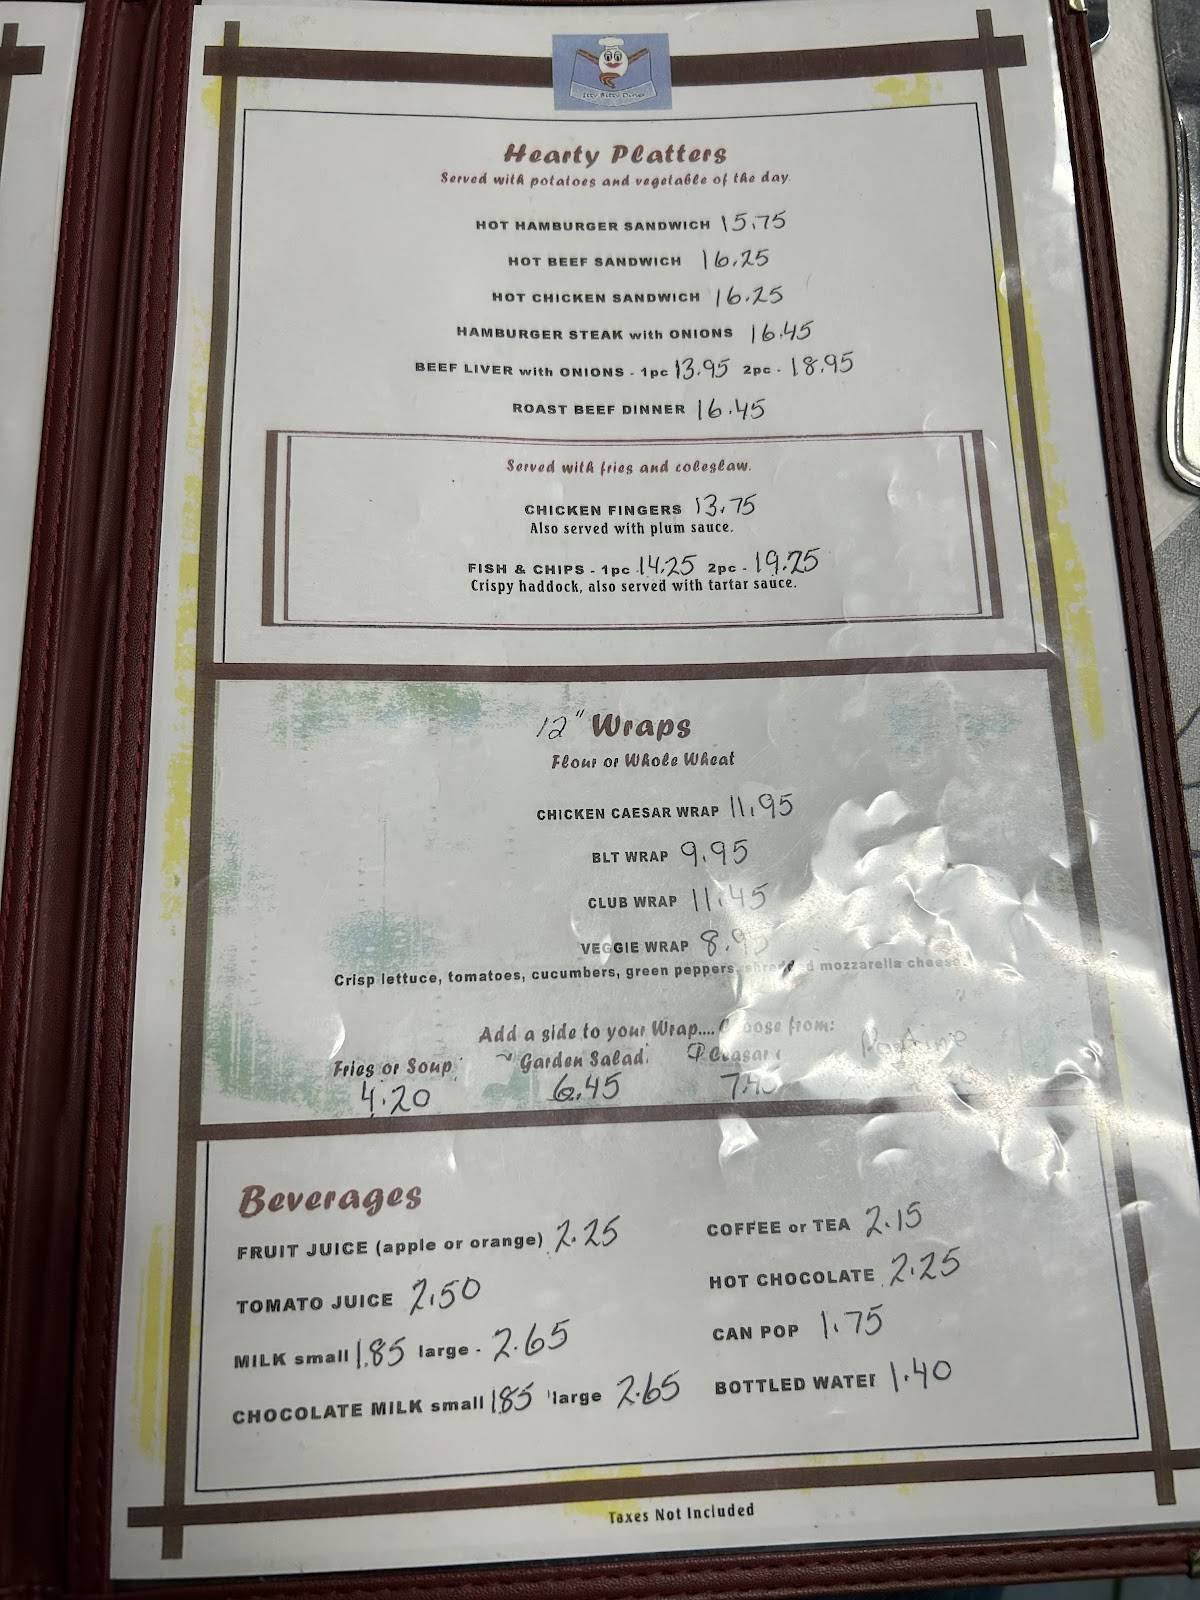 Itty Bitty Diner
Hearty Platters
Served with potatoes and vegetable of the day.
HOT HAMBURGER SANDWICH 15.75
HOT BEEF SANDWICH 16.25
HOT CHICKEN SANDWICH 16.25
HAMBURGER STEAK with ONIONS 16.45
BEEF LIVER with ONIONS - 1pc 13.95 2pc - 18.95
ROAST BEEF DINNER 16.45
Served with fries and coleslaw.
CHICKEN FINGERS 13.75
Also served with plum sauce.
FISH & CHIPS - 1pc 14.25 2pc - 19.25
Crispy haddock, also served with tartar sauce.
12" Wraps
Flour or Whole Wheat
CHICKEN CAESAR WRAP 11.95
BLT WRAP 9.95
CLUB WRAP 11.45
VEGGIE WRAP 8.95
Crisp lettuce, tomatoes, cucumbers, green peppers, shredded mozzarella cheese.
Add a side to your Wrap.... Choose from:
Fries or Soup Garden Salad Ceasar Poutine
4.20 6.45
Beverages
FRUIT JUICE (apple or orange) 2.25
TOMATO JUICE 2.50
MILK small 1.85 large - 2.65
CHOCOLATE MILK small 1.85 large 2.65
COFFEE or TEA 2.15
HOT CHOCOLATE 2.25
CAN POP 1.75
BOTTLED WATER 1.40
Taxes Not Included